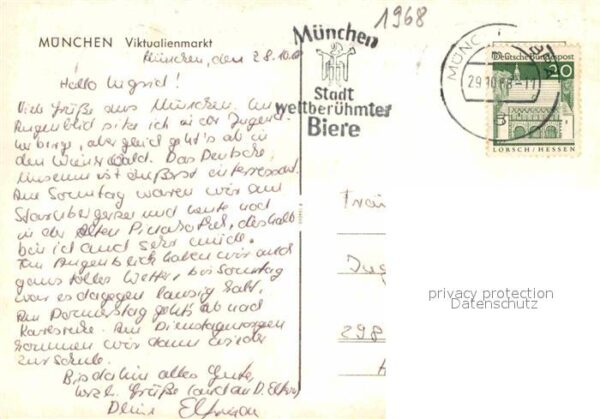 1968
MÜNCHEN Viktualienmarkt
München, den 28.10.
Hallo Ingrid!
Viele Grüße aus München. Im
Augenblick sitze ich in der Jugend-
herberge, aber gleich geht's ab in
den Wienerwald. Das Deutsche
Museum ist äußerst interessant.
Am Sonntag waren wir am
Starnbergersee und heute noch
in der alten Pinakothek, deshalb
bin ich auch sehr müde.
Im Augenblick haben wir auch
ganz tolles Wetter, bis Sonntag
war es dagegen lausig kalt.
Am Donnerstag geht's ab nach
Karlsruhe. Am Dienstagmorgen
kommen wir dann wieder
zur Schule.
Bis dahin alles Gute,
herzl. Grüße (auch an D. Eltern)
Deine
München
Stadt
weltberühmter
Biere
MÜNCHEN
29.10.68-11
Deutsche Bundespost
20
LORSCH / HESSEN
privacy protection
Datenschutz
298